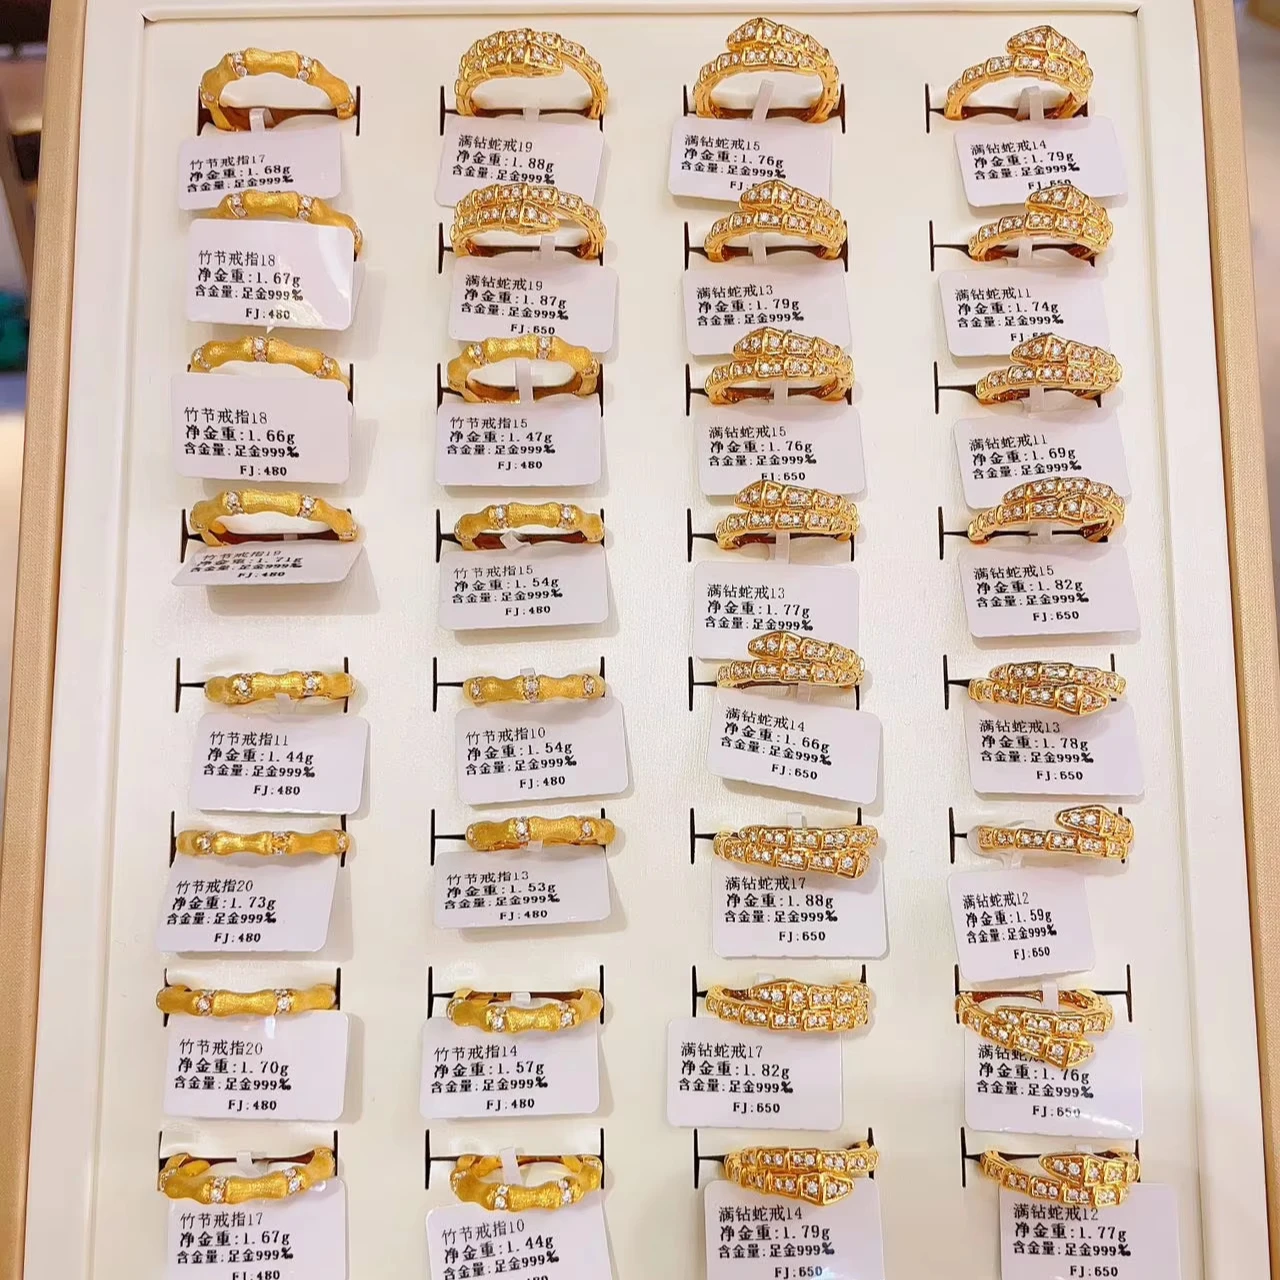 竹节戒指17
净金重:1.68g
含金量:足金999‰
满钻蛇戒19
净金重:1.88g
含金量:足金999‰
满钻蛇戒15
净金重:1.76g
含金量:足金999‰
满钻蛇戒14
净金重:1.79g
含金量:足金999‰
FJ:650
竹节戒指18
净金重:1.67g
含金量:足金999‰
FJ:480
满钻蛇戒19
净金重:1.87g
含金量:足金999‰
FJ:650
满钻蛇戒13
净金重:1.79g
含金量:足金999‰
满钻蛇戒11
净金重:1.74g
含金量:足金999‰
竹节戒指18
净金重:1.66g
含金量:足金999‰
FJ:480
竹节戒指15
净金重:1.47g
含金量:足金999‰
FJ:480
满钻蛇戒15
净金重:1.76g
含金量:足金999‰
FJ:650
满钻蛇戒11
净金重:1.69g
含金量:足金999‰
竹节戒指19
净金重:1.71g
含金量:足金999‰
FJ:480
竹节戒指15
净金重:1.54g
含金量:足金999‰
FJ:480
满钻蛇戒13
净金重:1.77g
含金量:足金999‰
满钻蛇戒15
净金重:1.82g
含金量:足金999‰
FJ:650
竹节戒指11
净金重:1.44g
含金量:足金999‰
FJ:480
竹节戒指10
净金重:1.54g
含金量:足金999‰
FJ:480
满钻蛇戒14
净金重:1.66g
含金量:足金999‰
FJ:650
满钻蛇戒13
净金重:1.78g
含金量:足金999‰
FJ:650
竹节戒指20
净金重:1.73g
含金量:足金999‰
FJ:480
竹节戒指13
净金重:1.53g
含金量:足金999‰
FJ:480
满钻蛇戒17
净金重:1.88g
含金量:足金999‰
FJ:650
满钻蛇戒12
净金重:1.59g
含金量:足金999‰
FJ:650
竹节戒指20
净金重:1.70g
含金量:足金999‰
FJ:480
竹节戒指14
净金重:1.57g
含金量:足金999‰
FJ:480
满钻蛇戒17
净金重:1.82g
含金量:足金999‰
FJ:650
满钻蛇
净金重:1.76g
含金量:足金999‰
FJ:650
竹节戒指17
净金重:1.67g
含金量:足金999‰
FJ:480
竹节戒指10
净金重:1.44g
含金量:足金999‰
满钻蛇戒14
净金重:1.79g
含金量:足金999‰
FJ:650
满钻蛇戒12
净金重:1.77g
含金量:足金999‰
FJ:650